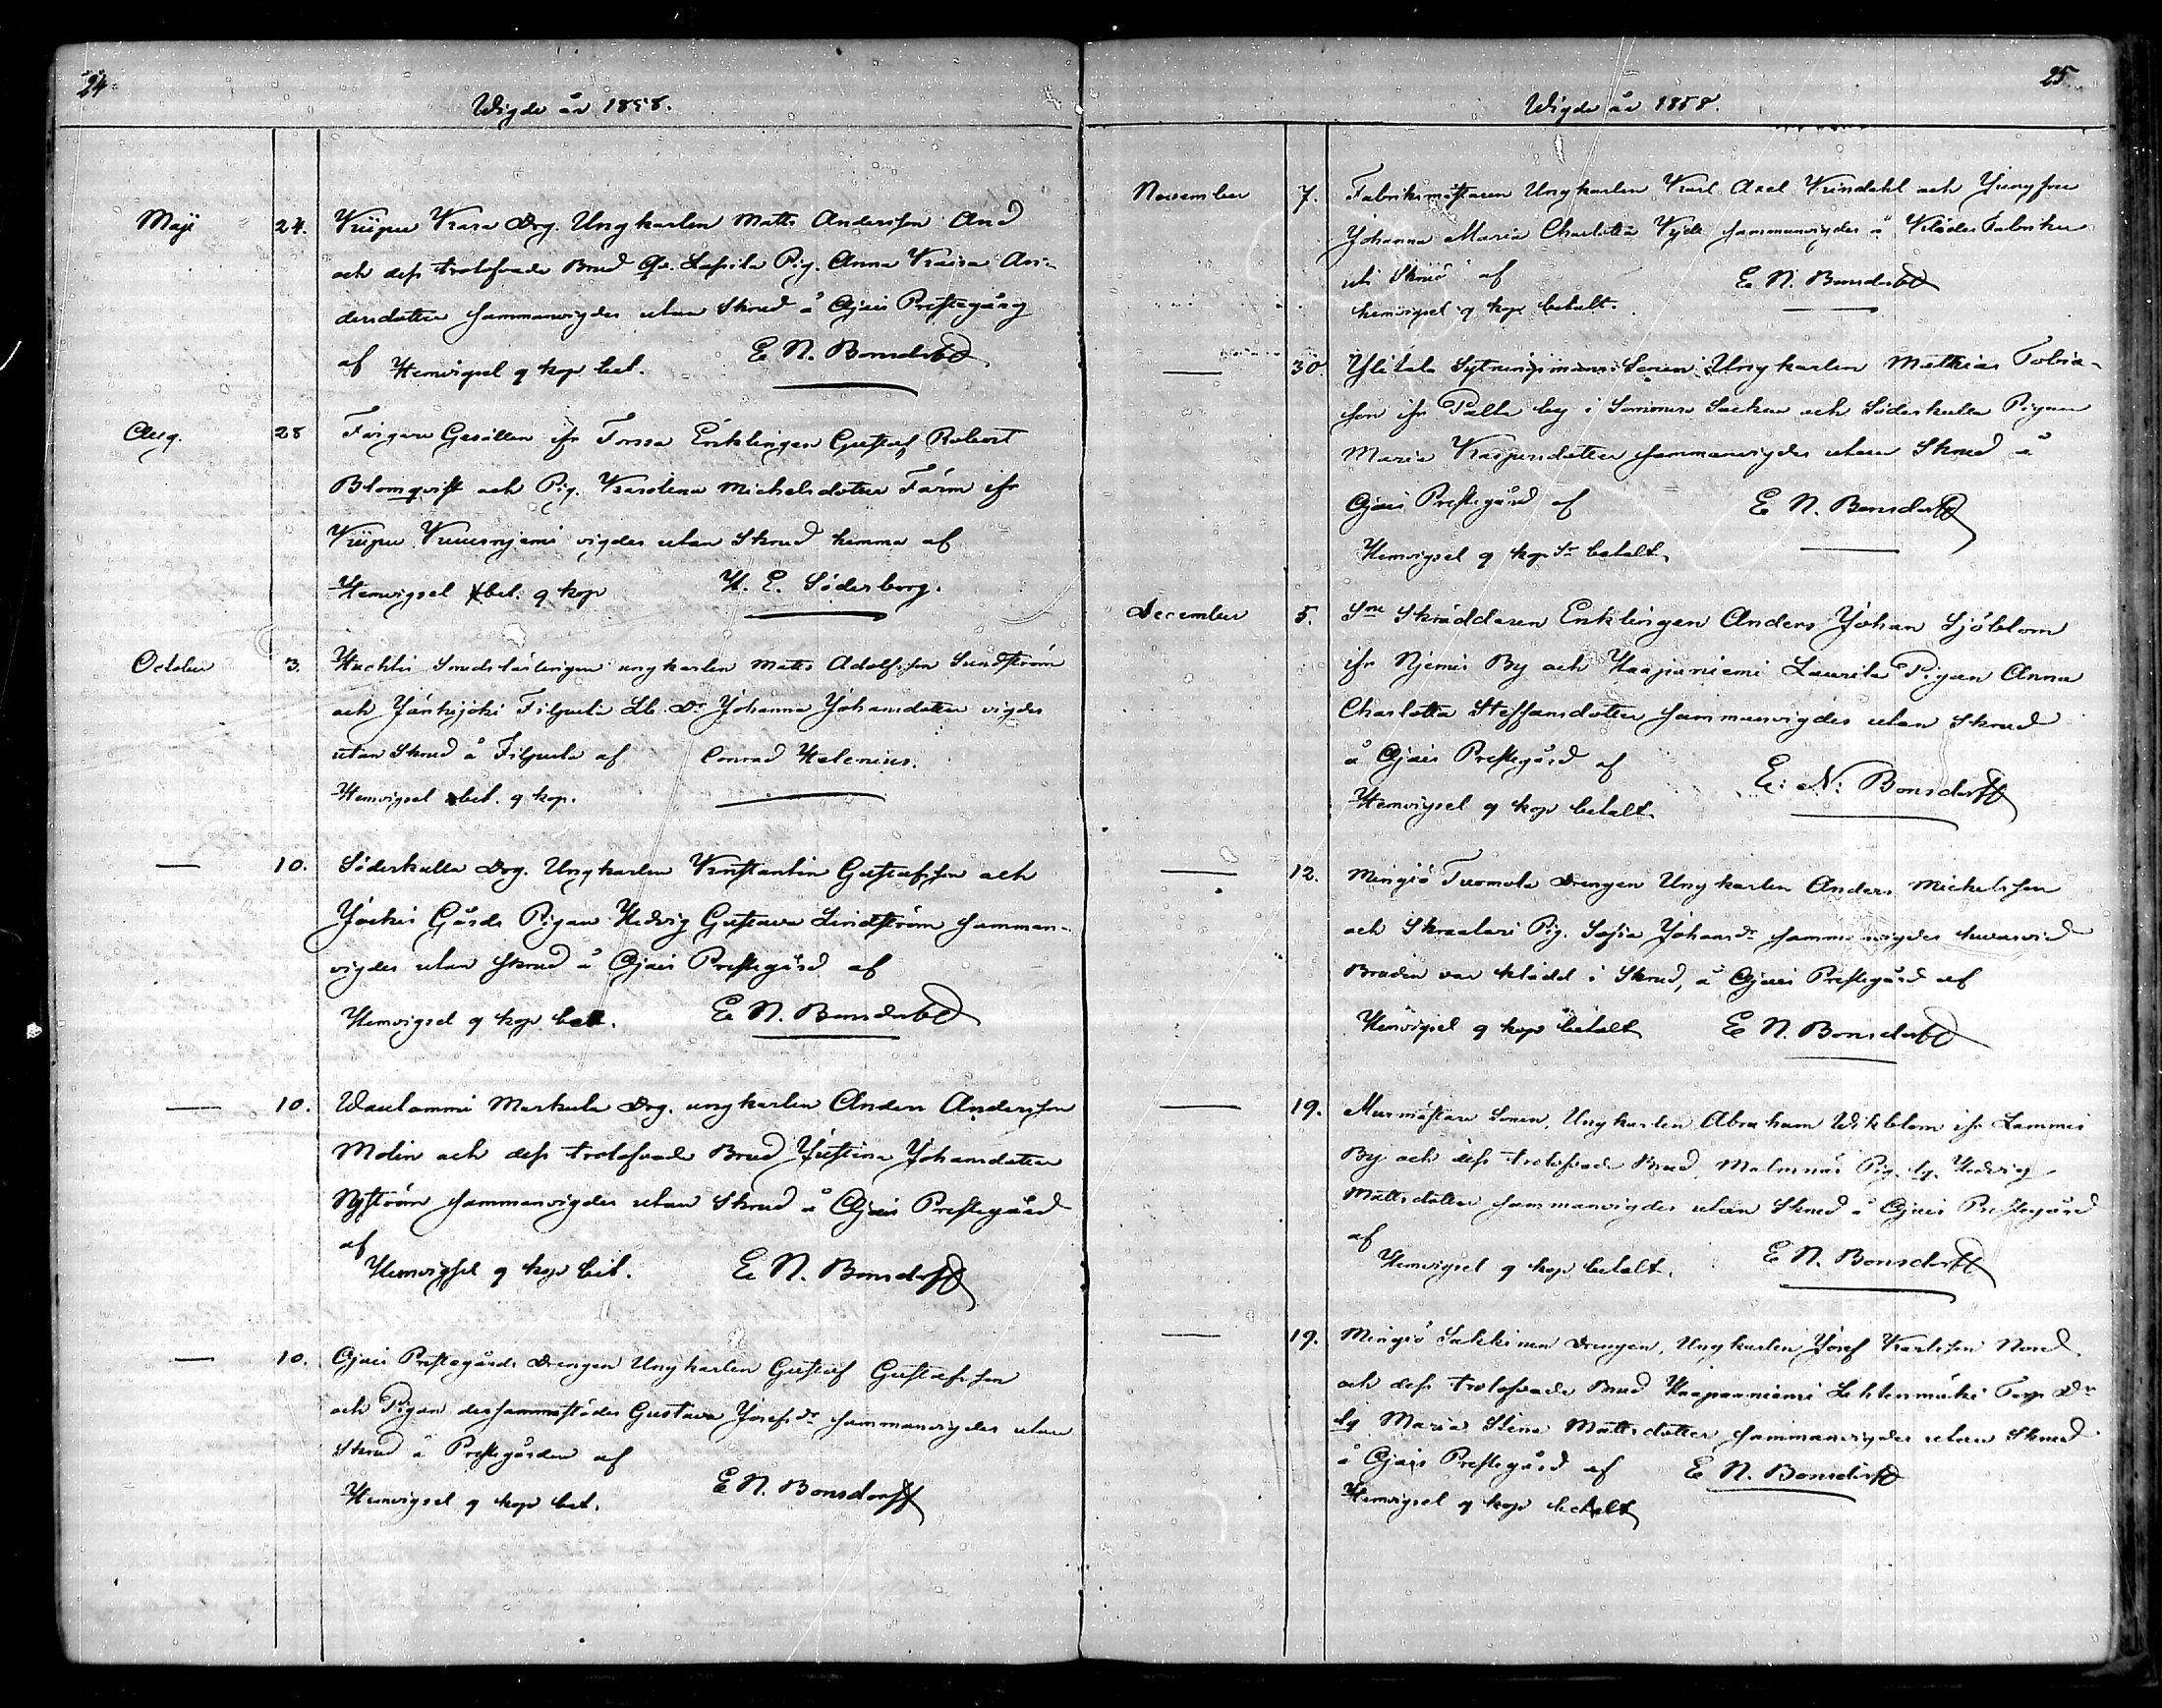 24.
Wigde år 1858.
Maji 24. Kiipu Kara Drg. Ungkarlen Matts Andersson And
och dess trolofvade Brud Qv. Lassila Pig. Anna Kaisa An-
dersdotter sammanvigdes utan Skrud å Ojais Prestegård
af Hemvigsel o kop bet. E N. Bonsdorff
Aug. 28 Färgare Gesällen ifr Forssa Enklingen Gustaf Robert
Blomqvist och Pig. Karolina Michelsdotter Färm ifr
Kiipu vigdes utan Skrud hemma af
Hemvigsel bet. o kop H. E. Söderborg.
October 3. Huchti Smedslärlingen ungkarlen Matts Adolfsson Sundström
och Jänhijoki Filpula Lb. Dr Johanna Johansdotter vigdes
utan Skrud å Filpula af Conrad Helenius.
Hemvigsel bet. o kop.
— 10. Söderkulla Drg. Ungkarlen Konstantin Gustafsson och
Jockis Gårds Pigan Hedvig Gustava Lindström samman-
vigdes utan skrud å Ojais Prestegård af
Hemvigsel o kop bet. E N. Bonsdorff
— 10. Waulammi Markula Drg. ungkarlen Anders Andersson
Molin och dess trolofvade Brud Justina Johansdotter
Nyström sammanvigdes utan Skrud å Ojais Prestegård
af Hemvigsel o kop bet. E N. Bonsdorff
— 10. Ojais Prestegårds Drengen Ungkarlen Gustaf Gustafsson
och Pigan dersammastädes Gustava Josefsdr sammanvigdes utan
Skrud å Prestegården af
Hemvigsel o kop bet. E N. Bonsdorff
25.
Wigde år 1858.
November 7. Fabriksmästaren Ungkarlen Karl Axel Vrindahl och Jungfru
Johanna Maria Charlotta sammanvigdes å Klädes Fabriken
uti Skrud af E N. Bonsdorff
hemvigsel o kop betalt.
— 30 Ylitalo Sytningsmans Sonen Ungkarlen Mathias Tobia-
son ifr Palla by i Somero Socken och Söderkulla Pigan
Maria Kaspersdotter sammanvigdes utan Skrud å
Ojais Prestegård af E N. Bonsdorff
Hemvigsel o kop betalt.
December 5. Sne Skräddaren Enklingen Anders Johan Sjöblom
ifr Njemis By och Haapaniemi Laurila Pigan Anna
Charlotta Steffansdotter sammanvigdes utan Skrud
å Ojais Prestegård af E: N: Bonsdorff
Hemvigsel o kop betalt.
— 12. Mingiö Tuomola Drengen Ungkarlen Anders Michelsson
och Pig. Sofia Johansdr sammanvigdes hvarvid
Bruden var klädd i Skrud, å Ojais Prestegård af
Hemvigsel o kop betalt E N. Bonsdorff
— 19. Murmästare Sonen, Ungkarlen Abraham Wikblom ifr Lammis
By och dess trolofvade Brud Malmnäs Pig. Hedvig
Mattsdotter sammanvigdes utan Skrud å Ojais Prestegård
af Hemvigsel o kop betalt. E N. Bonsdorff
— 19. Mingiö Sukkinen Drengen, Ungkarlen Josef Karlsson Nord
och dess trolofvade Brud Haapaniemi Lehtenmäki Torp Dr
Maria Stina Mattsdotter sammanvigdes utan Skrud
å Ojais Prestegård af E N. Bonsdorff
Hemvigsel o kop betalt